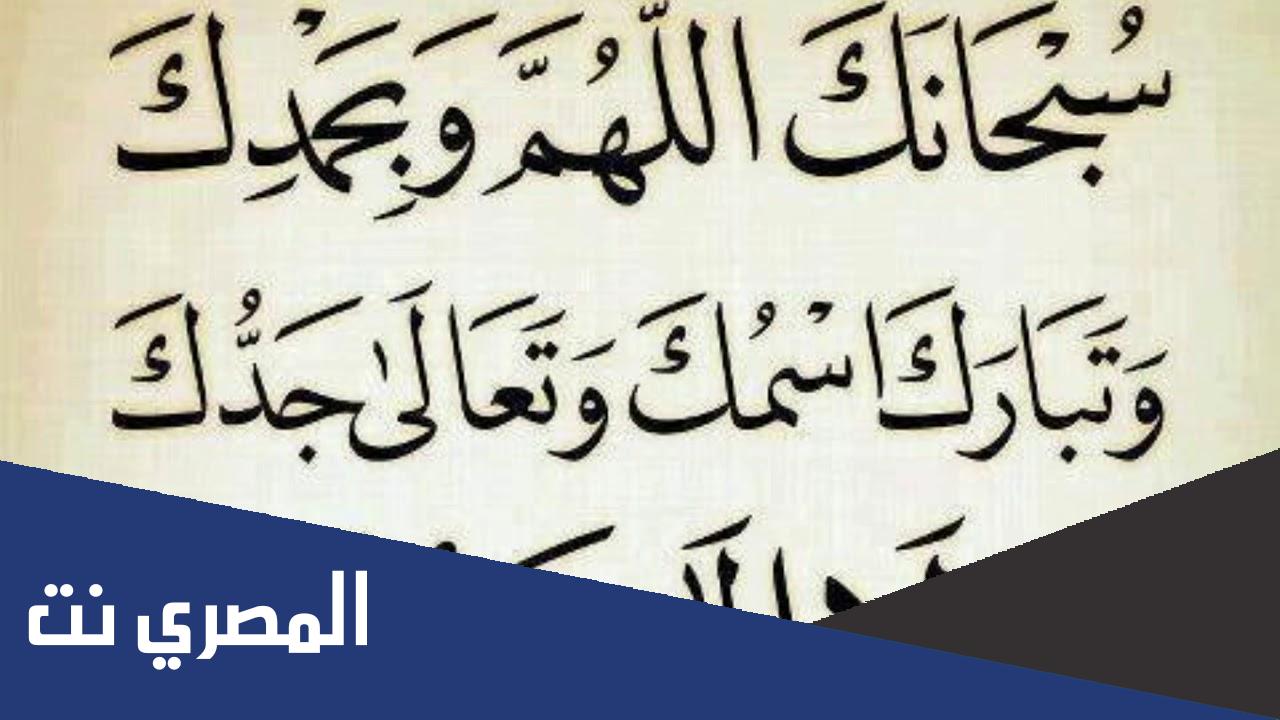 سُبْحَانَكَ اللَّهُمَّ وَبِحَمْدِكَ
وَتَبَارَكَ اسْمُكَ وَتَعَالَىٰ جَدُّكَ
المصري نت